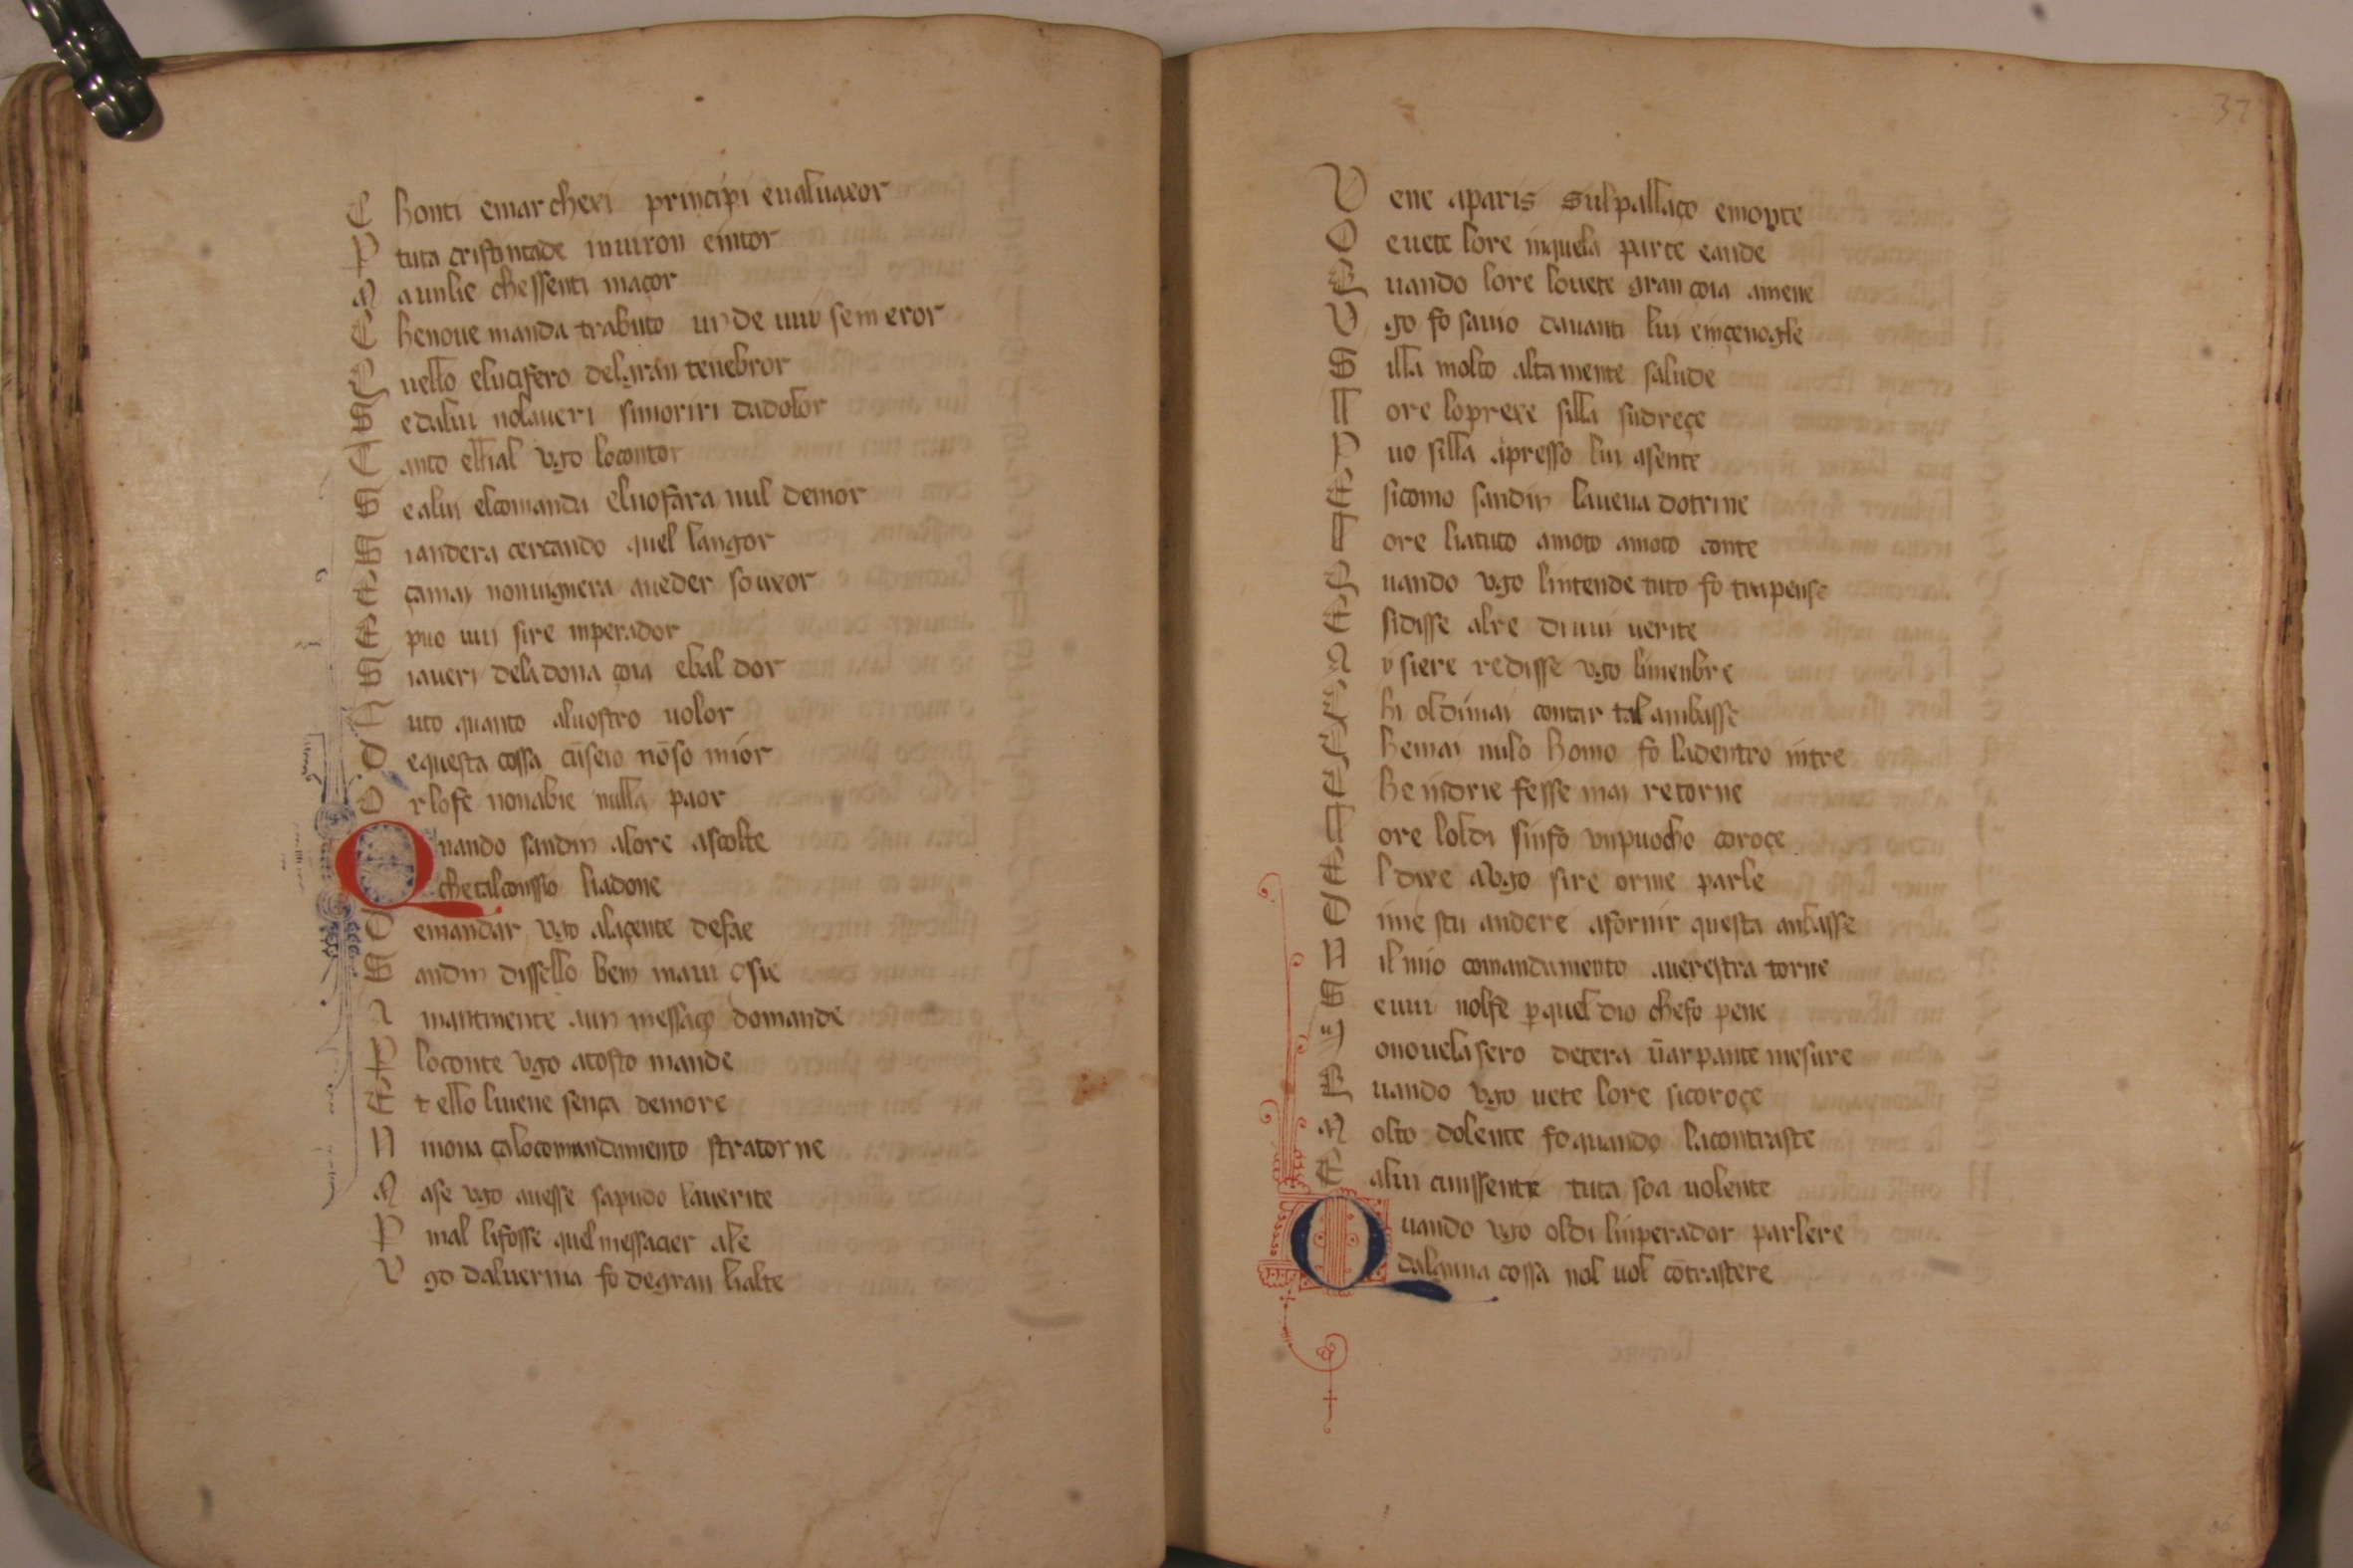 C honti emarchexi principi eualuaxor
P tuta cristintade inuiron eintor
M aunlie chessenti maçor
C henoue manda trabuto unde uui semeror
Q uello elucifero delgran tenebror
S edalui nolaueri simoriri dadolor
T anto ellial vgo locontor
S ealui elcomanda eluofara nul demor
S iandera cercando quel langor
E çamay nonuignera aueder souxor
E puo uui sire inperador
S iauery deladona çoia ebaldor
A uto quanto aluostro uolor
D equesta cossa cūseio nōso mior
O rlofe nonabie nulla paor
Quando sandin alore ascolte
chetalconssio liadone
D emandar vgo alaçente desae
S andin dissello bem maui osie
I mantinente aun messaço domande
P loconte vgo atosto mande
E tello liuene sença demore
N inona çalocomandamento stratorne
M ase vgo auesse sapudo lauerite
P mal lifosse quel messacier ale
V go daluernia fo degran lialte
37
V ene aparis sulpallaço emonte
O euete lore inquela parte eande
Q uando lore louete gran çoia amene
V go fo sauio dauanti luy einçenogle
S illa molto altamente salude
L ore loprexe silla sudreçe
P uo silla apresso luy asente
E sicomo sandin laueua dotrine
L ore liatuto amoto amoto conte
Q uando vgo lintende tuto fo trapense
E sidisse alre diuui uerite
A y siere redisse vgo limenbre
C hi oldimai contar tal ambasse
C hemai nulo homo fo ladentro intre
C he indrie fesse may retorne
L ore loldi sinfo vnpuocho coroçe
E ldixe aVgo sire orme parle
D ime stu andere afornir questa anbasse
N ilmio comandamento auerestra torne
S euui nolfe p̱quel dio chefo pene
Y onouelasero decera ūarpante mesure
Q uando vgo uete lore sicoroçe
M olto dolente foquando lacontraste
E alui cuissente tuta soa uolente
Quando vgo oldi linperador parlere
dalguna cossa nol uol cōtrastere